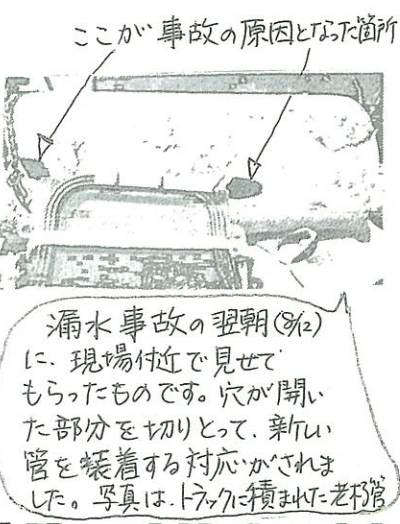 ここが事故の原因となった箇所
漏水事故の翌朝(8/12)
に、現場付近で見せて
もらったものです。穴が開い
た部分を切りとって、新しい
管を装着する対応がされま
した。写真は、トラックに積まれた老朽管